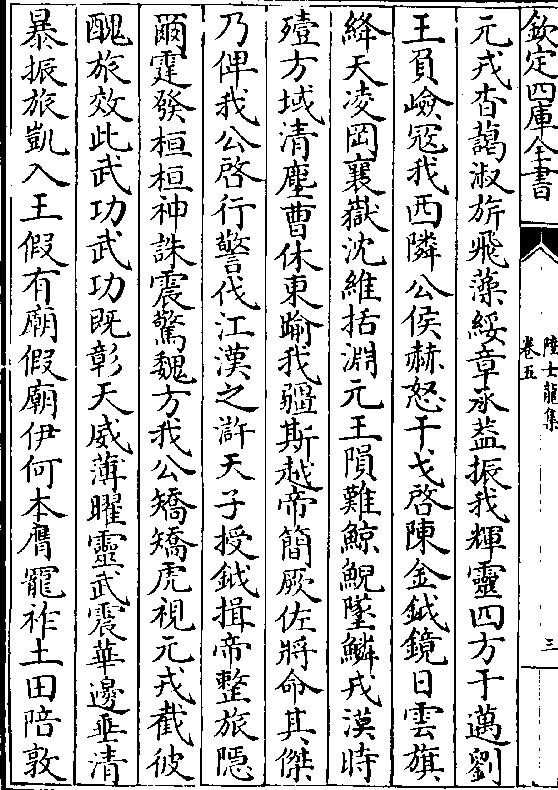 欽定四庫全書
陸士龍集
卷五
三
元戎杳藹淑旂飛藻綏章承葢振我輝靈四方于邁劉
王負嶮冦我西隣公侯赫怒干戈啓陳金鉞鏡日雲旗
絳天凌岡襄嶽沈維括淵元王隕難鯨鯢墜鱗戎漠時
殪方域清塵曹休東踰我疆斯越帝簡厥佐將命其傑
乃俾我公啓行警伐江漢之滸天子授鉞揖帝整旅隠
爾霆發桓桓神誅震驚魏方我公矯矯虎視元戎截彼
醜旅效此武功武功既彰天威薄曜靈武震華邊垂清
暴振旅凱入王假有廟假廟伊何本膺寵祚土田陪敦